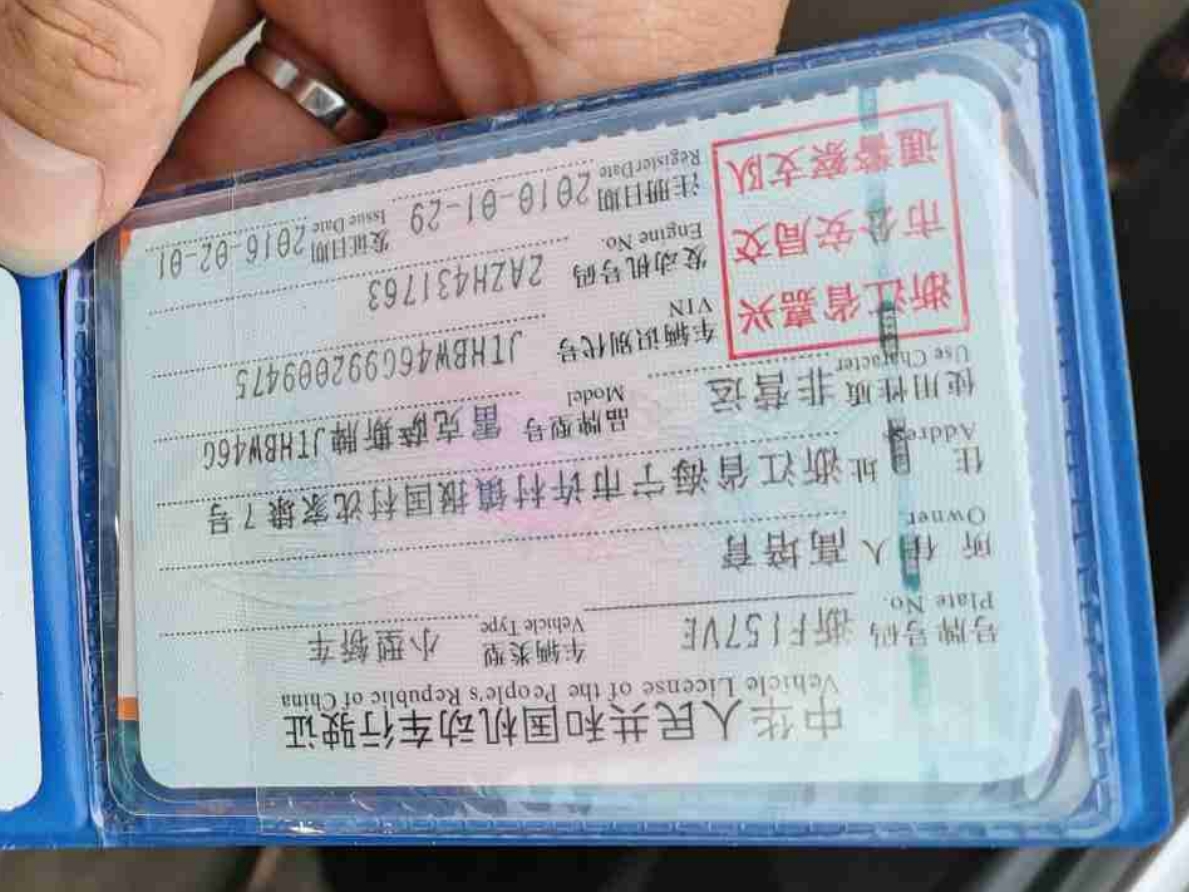 中华人民共和国机动车行驶证
Vehicle License of the People's Republic of China
号牌号码 浙F157VE 车辆类型 小型轿车
Plate No. Vehicle Type
所有人 高培育
Owner
住址 浙江省海宁市许村镇报国村沈家埭7号
Address
使用性质 非营运 品牌型号 雷克萨斯牌JTHBW46G
Use Character Model
浙江省嘉兴
市公安局交
通警察支队
车辆识别代号 JTHBW46G992009475
VIN
发动机号码 2AZH431763
Engine No.
注册日期 2010-01-29 发证日期 2016-02-01
Register Date Issue Date